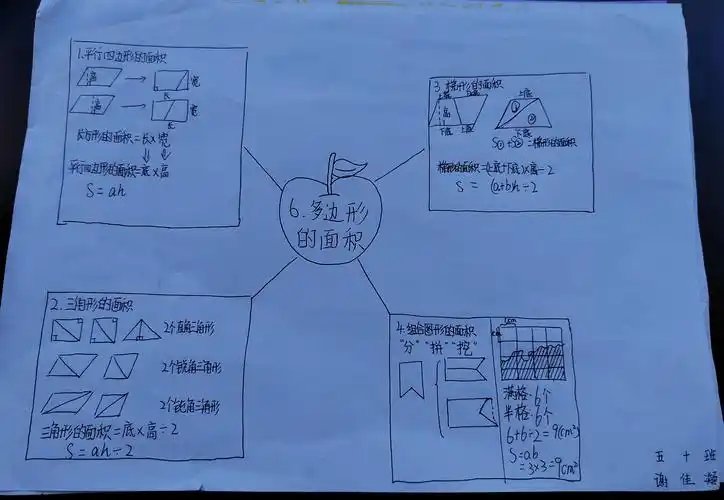 6.多边形
的面积
1.平行四边形的面积
高
宽
长
高
宽
长
长方形的面积=长×宽
平行四边形的面积=底×高
S=ah
2.三角形的面积
2个直角三角形
2个锐角三角形
2个钝角三角形
三角形的面积=底×高÷2
S=ah÷2
3.梯形的面积
上底 下底
上底
高
① ②
下底 上底
下底
S①+S②=梯形的面积
梯形的面积=(上底+下底)×高÷2
S=(a+b)h÷2
4.组合图形的面积
"分""拼""挖"
1cm
满格:6个
半格:6个
6+6÷2=9(cm²)
S=ab
=3×3=9cm²
五十班
谢佳